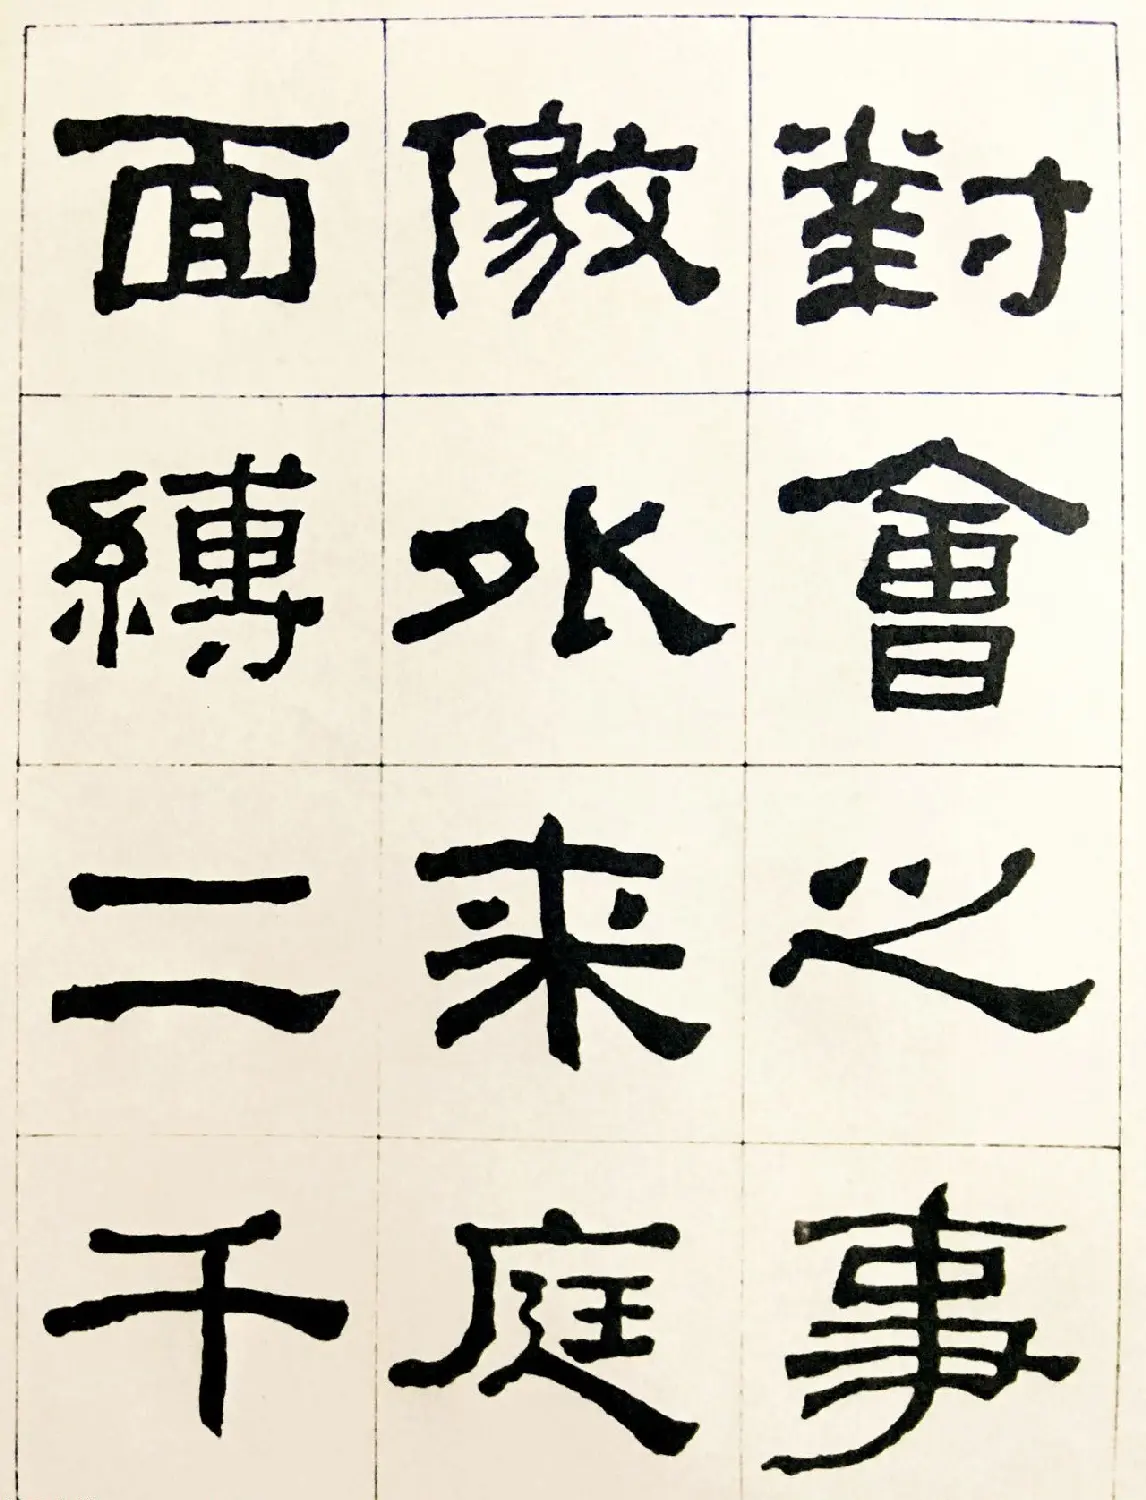 對會之事
徼外来庭
面縛二千